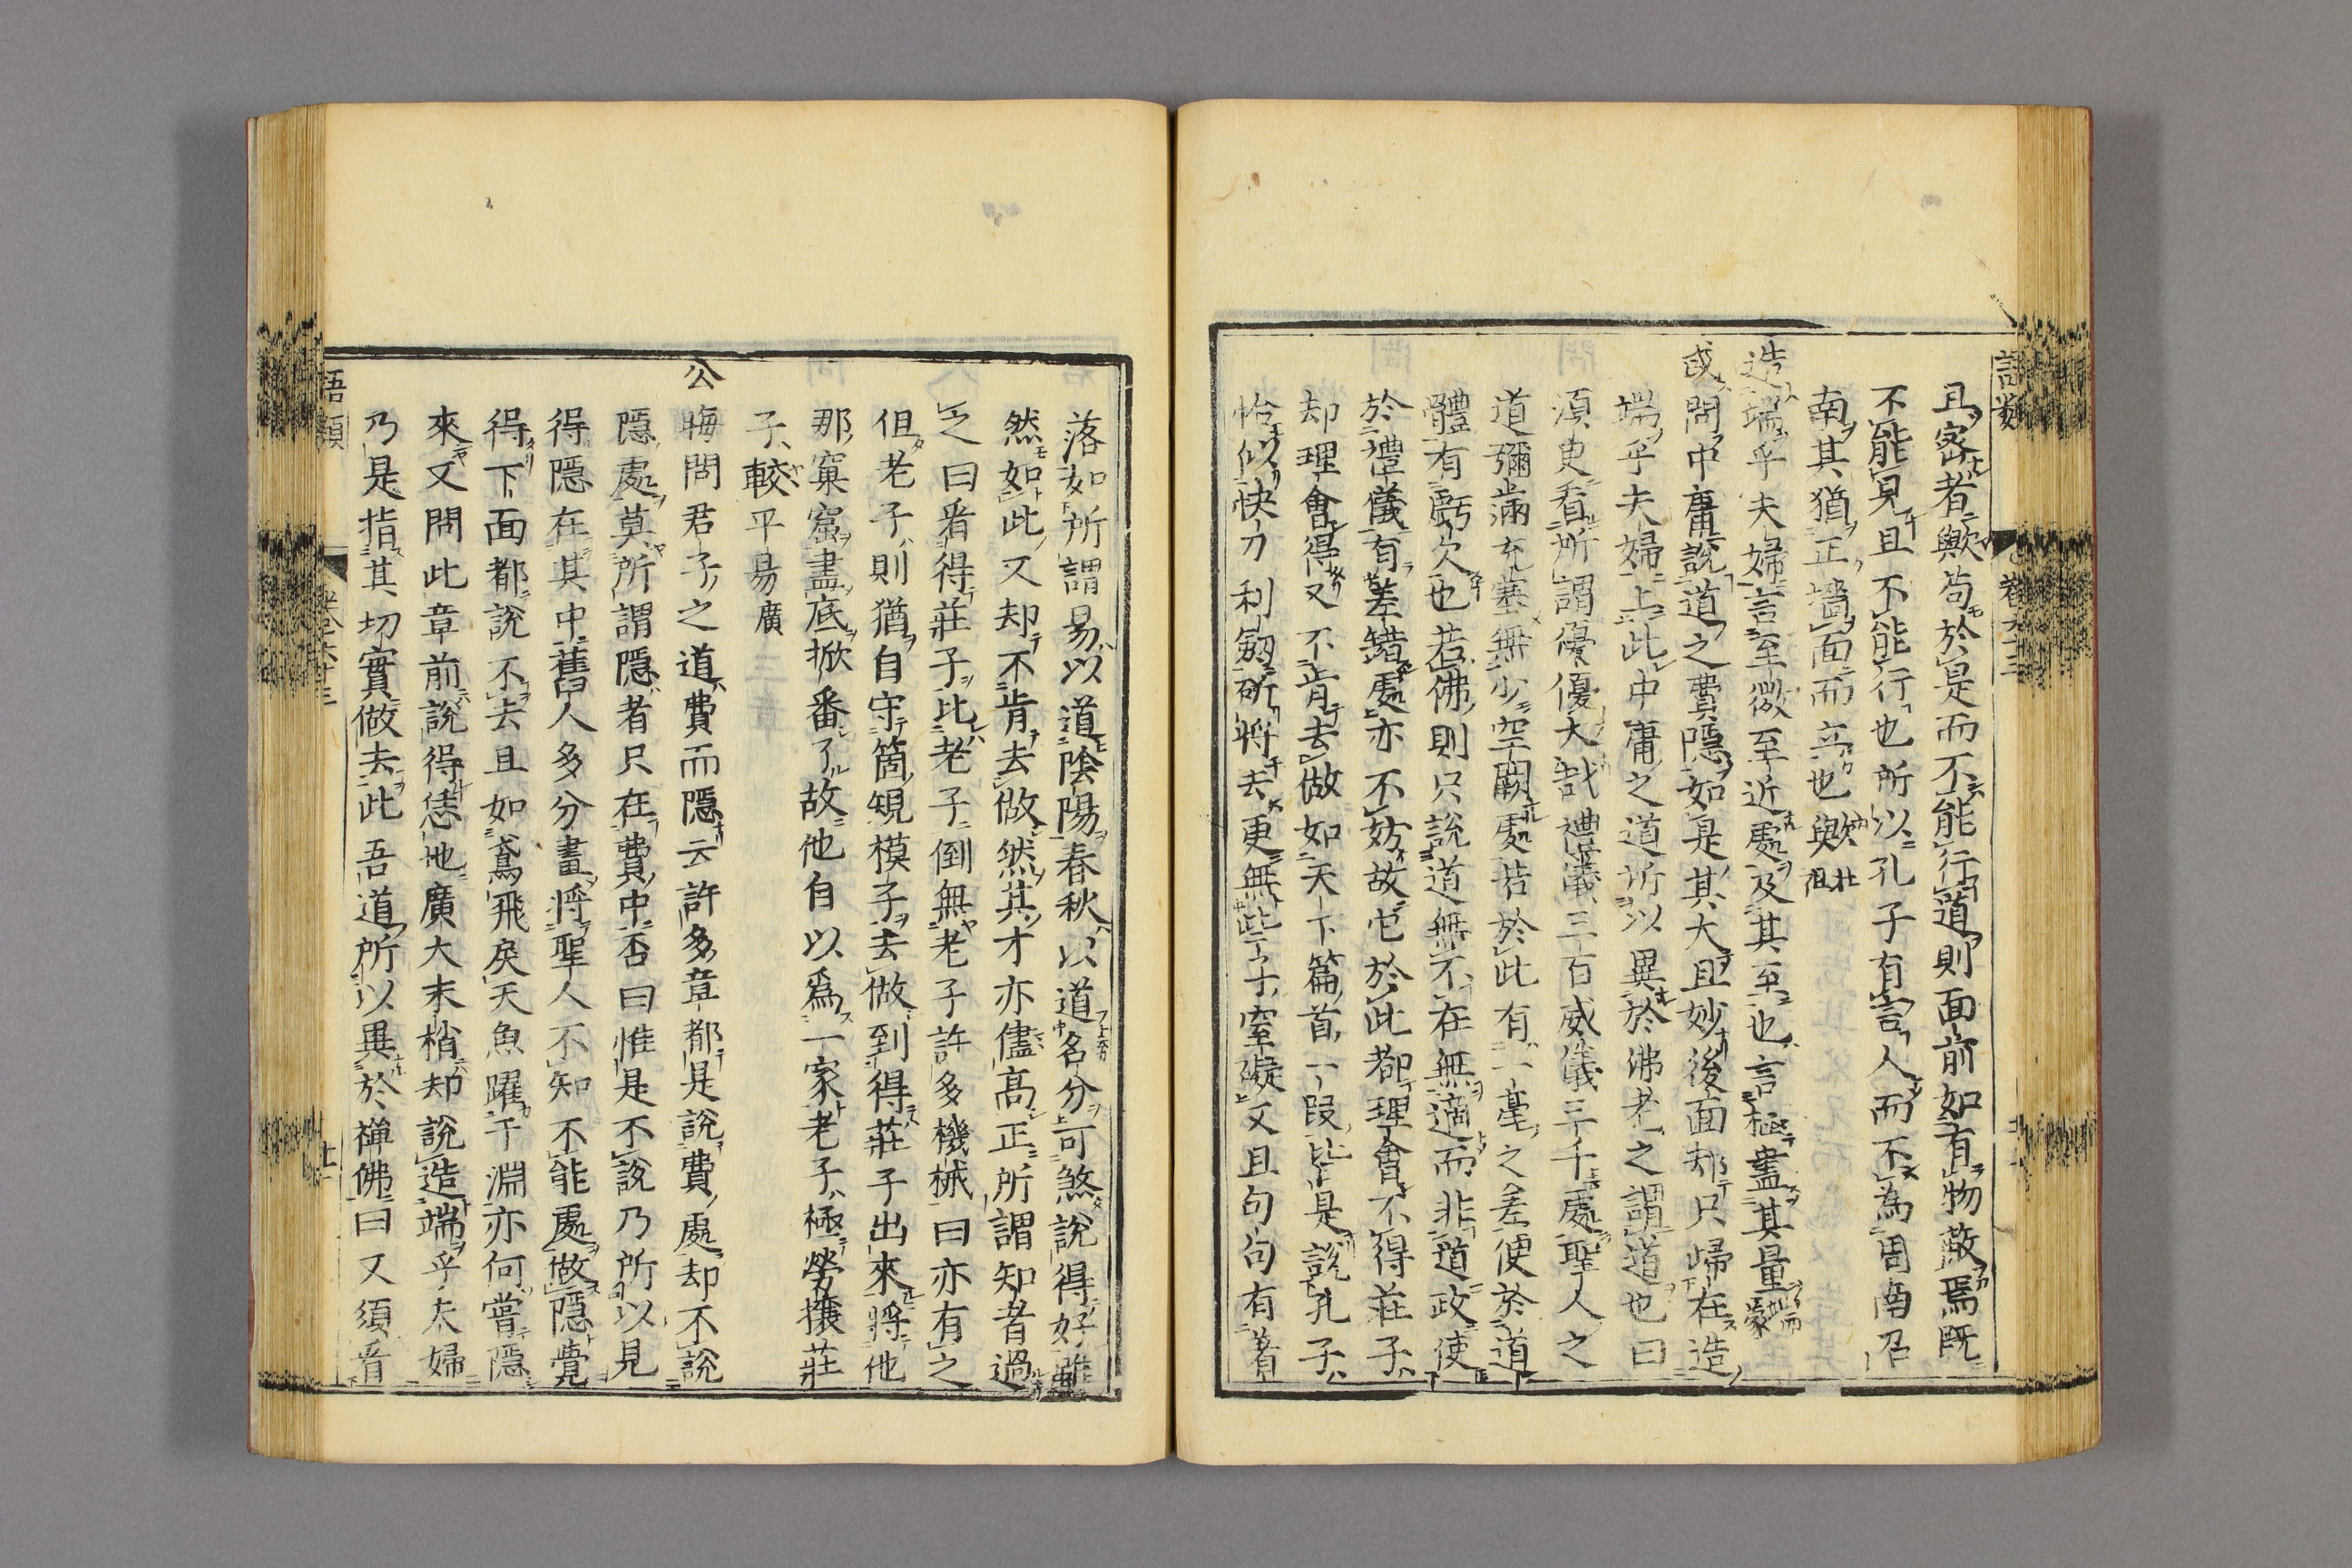 語類 卷六十三
且密者歟苟於是而不能行道則面前如有物蔽焉既
不能見且不能行也所以孔子有言人而不為周南召
南其猶正牆面而立也歟壯祖
造端乎夫婦言至微至近處及其至也言極盡其量端蒙
或問中庸說道之費隱如是其大且妙後面却只歸在造
端乎夫婦上此中庸之道所以異於佛老之謂道也曰
須更看所謂優優大哉禮儀三百威儀三千處聖人之
道彌滿充塞無少空闕處若於此有一毫之差便於道
體有虧欠也若佛則只說道無不在無適而非道政使
於禮儀有差錯處亦不妨故它於此都理會不得莊子
却理會得又不肯去做如天下篇首一段皆是說孔子
恰似快刀利劒斫將去更無些子窒礙又且句句有着
落如所謂易以道陰陽春秋以道名分可煞說得好雖
然如此又却不肯去做然其才亦儘高正所謂知者過
之曰看得莊子比老子倒無老子許多機械曰亦有之
但老子則猶自守箇規模子去做到得莊子出來將他
那窠窟盡底掀番了故他自以為一家老子極勞攘莊
子較平易廣
公晦問君子之道費而隱云許多章都是說費處却不說
隱處莫所謂隱者只在費中否曰惟是不說乃所以見
得隱在其中舊人多分畫將聖人不知不能處做隱覺
得下面都說不去且如鳶飛戾天魚躍于淵亦何嘗隱
來又問此章前說得恁地廣大末梢却說造端乎夫婦
乃是指其切實做去此吾道所以異於禪佛曰又須看
語類 卷六十三 十一